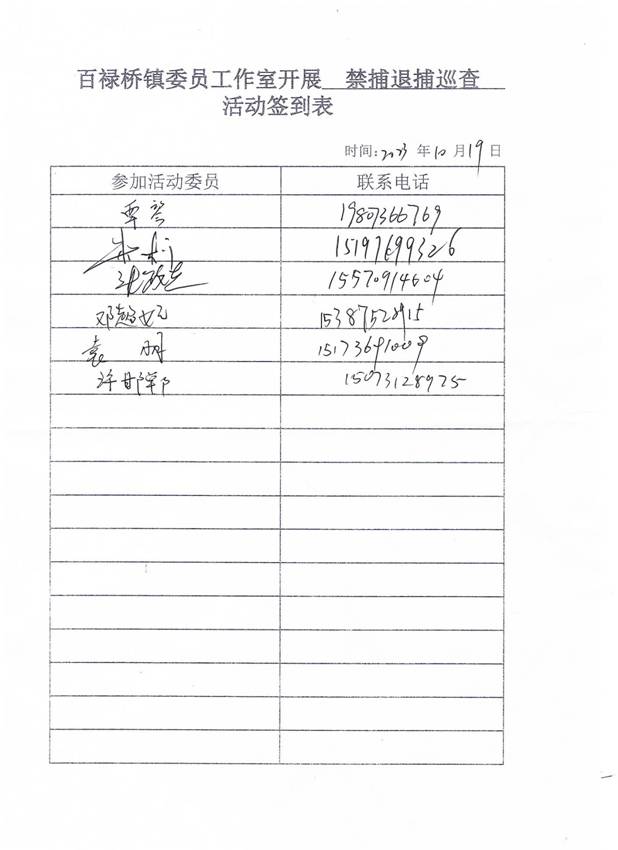 百禄桥镇委员工作室开展 禁捕退捕巡查
活动签到表
时间:2023年10月19日
参加活动委员 联系电话
覃容 19807366769
15197699326
15570914604
15387528915
袁明 15173691009
许邯郸 15073128975